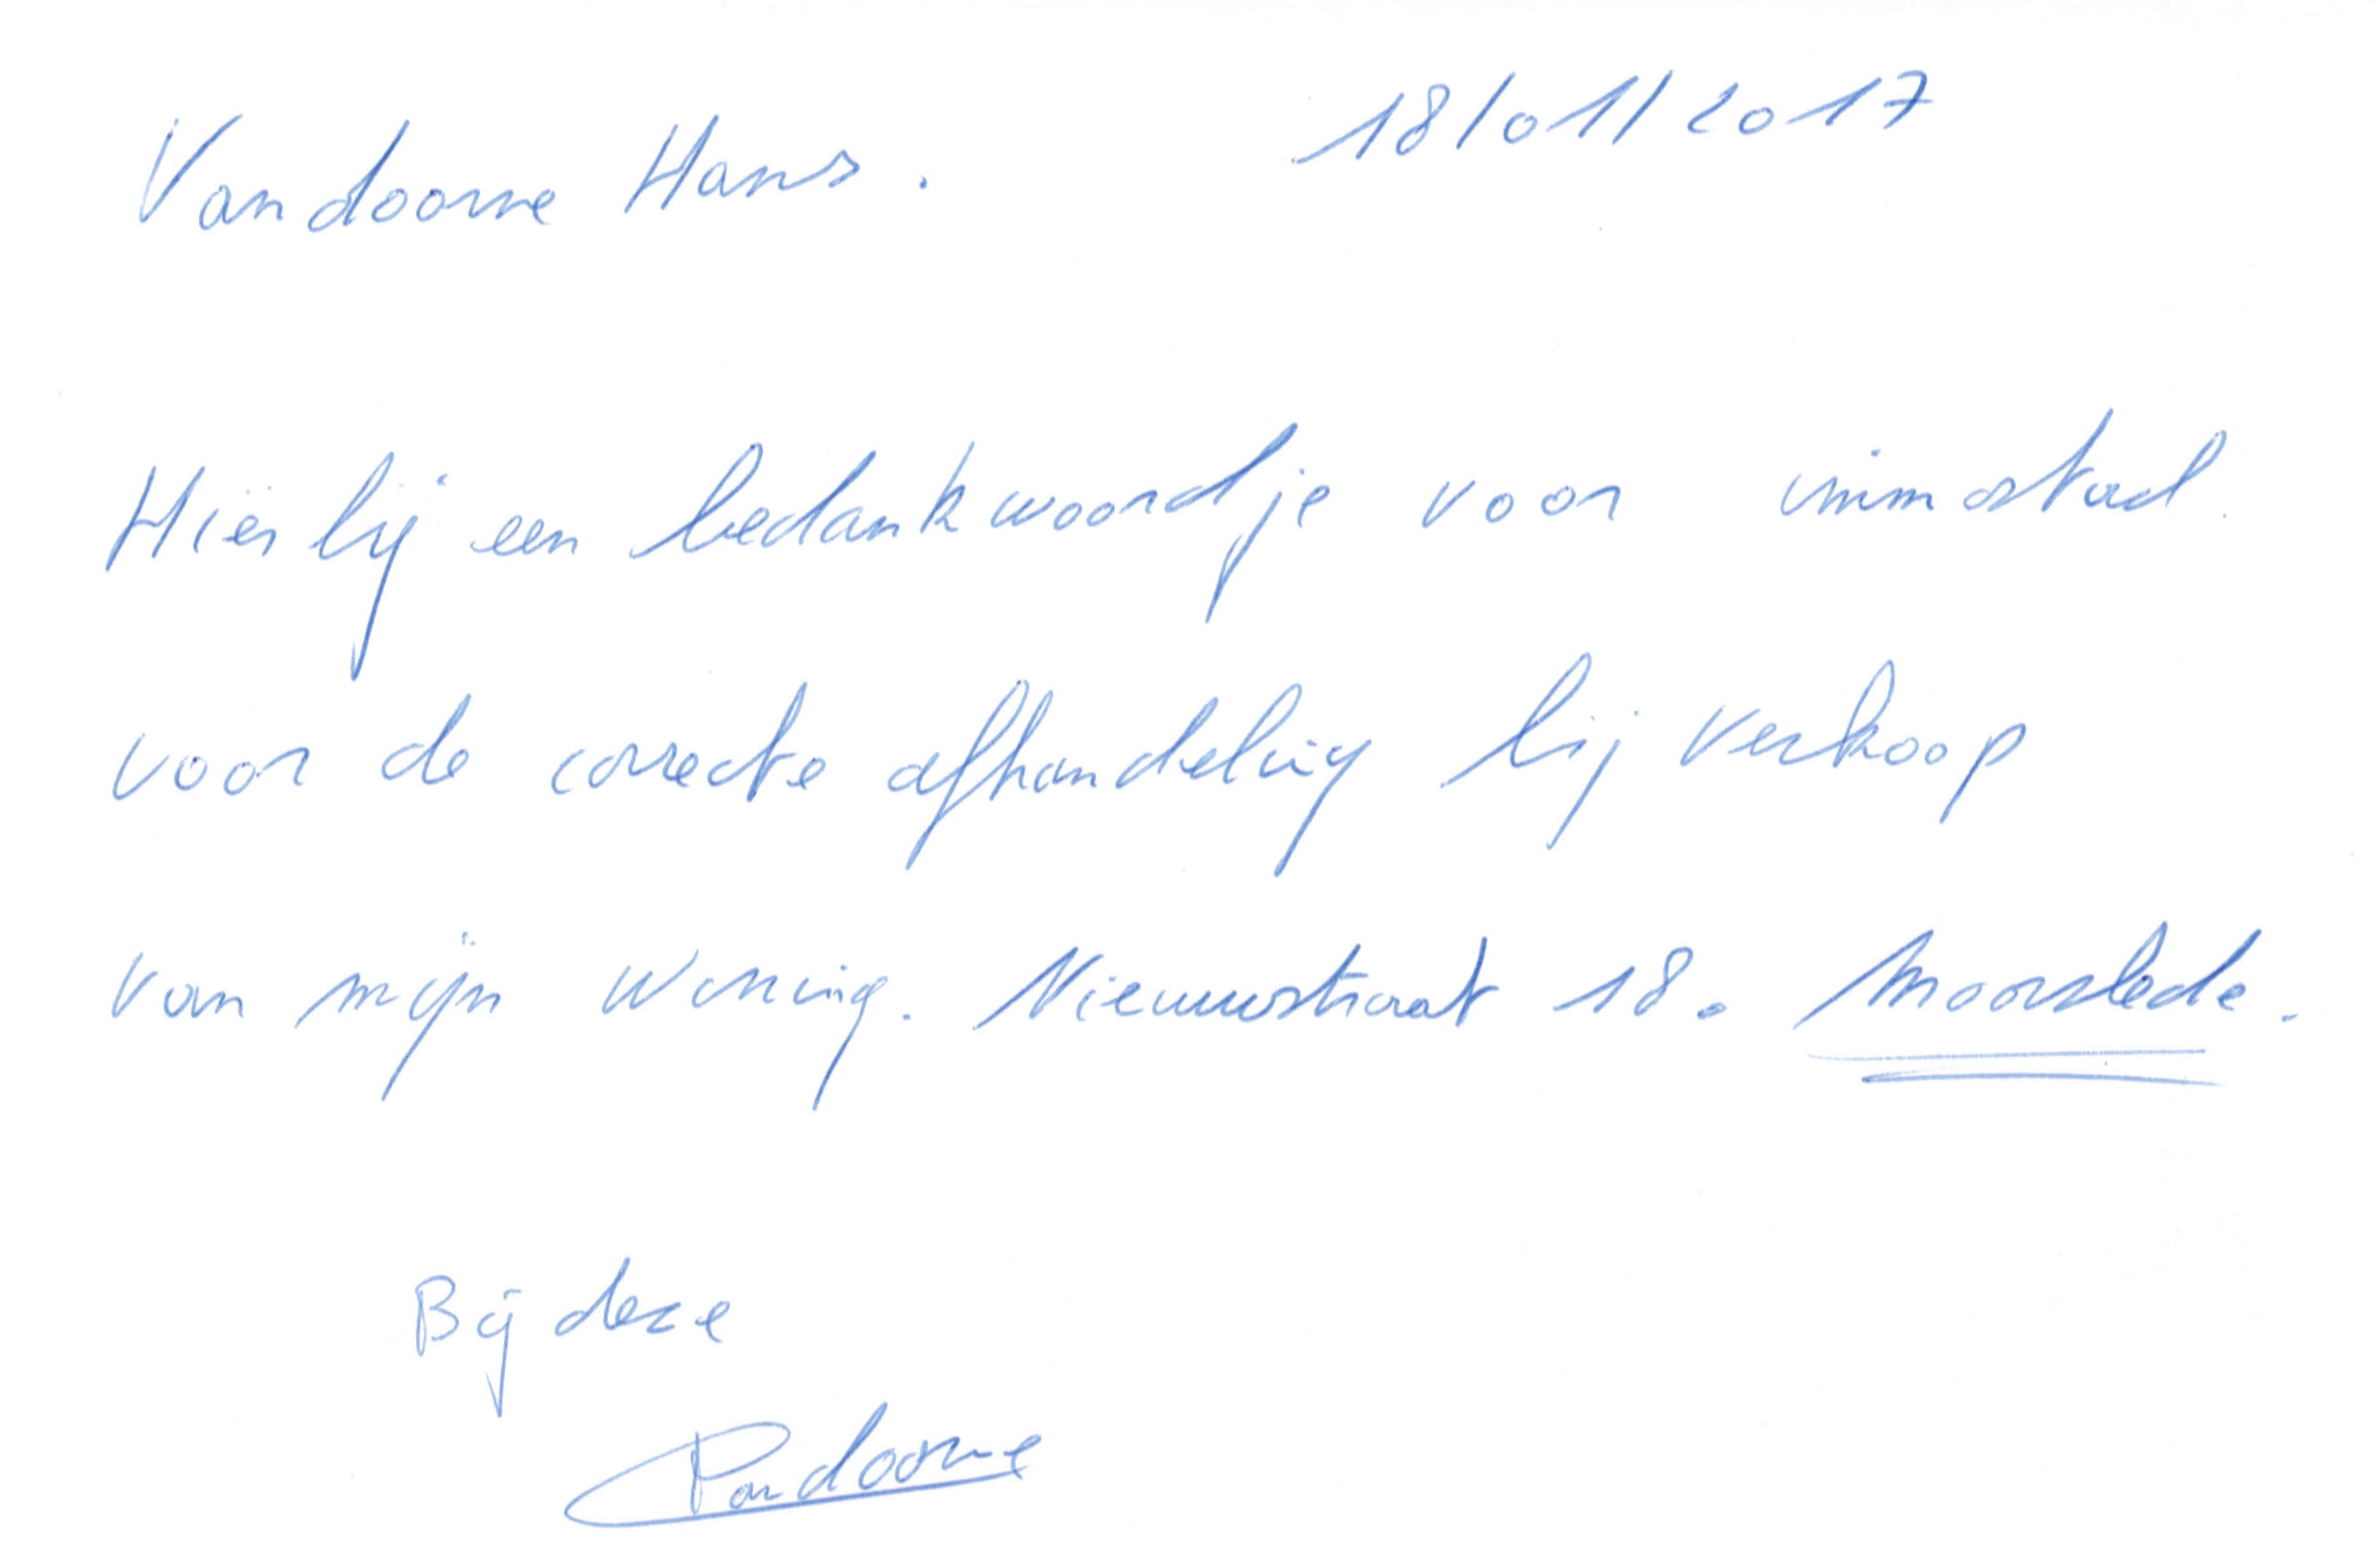 Vandoorne Hans. 18/01/2017
Hierbij een bedankwoordje voor immostad.
voor de correcte afhandeling bij verkoop
van mijn woning. Nieuwstraat 18. Moorslede.
Bij deze
Vandoorne